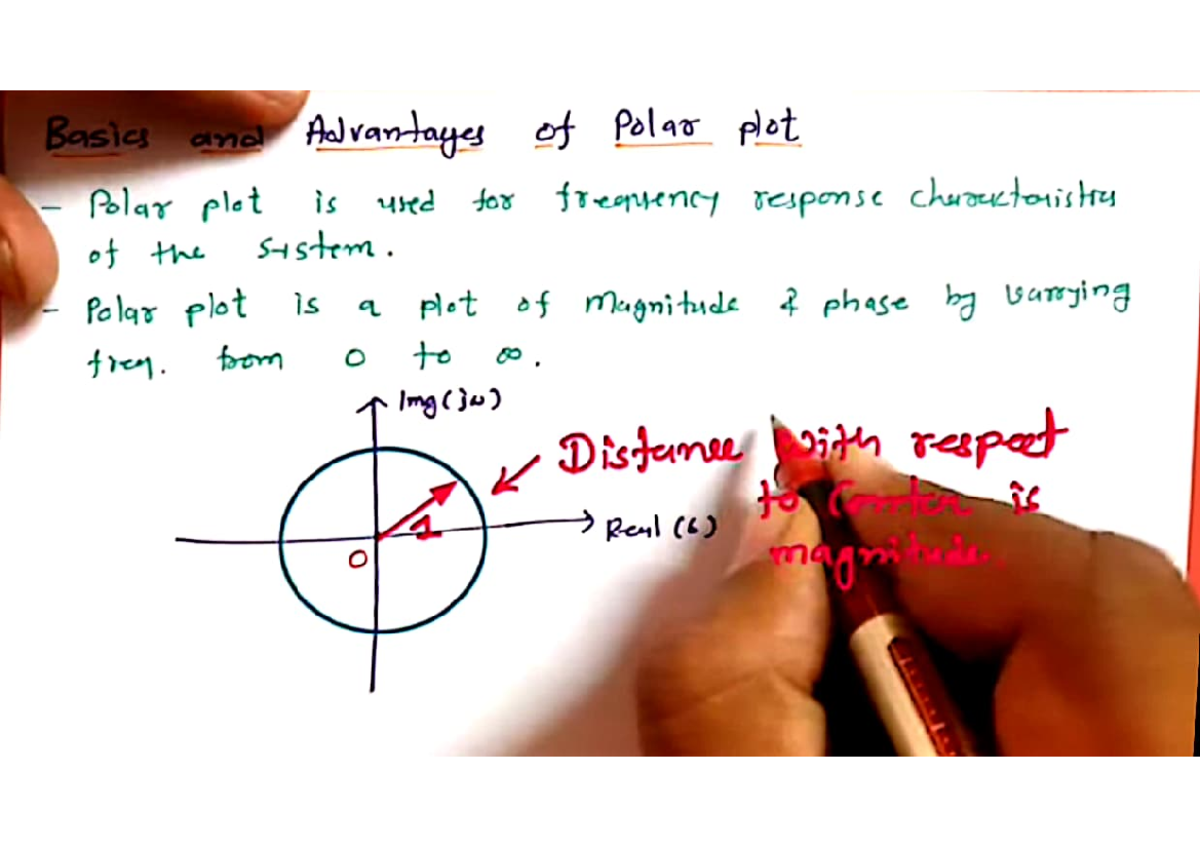 Basics and Advantages of Polar plot
- Polar plot is used for frequency response characteristics
of the system.
- Polar plot is a plot of magnitude & phase by varying
freq. from 0 to ∞.
Img (jω)
Distance with respect
to Center is
magnitude.
1
Real (6)
0